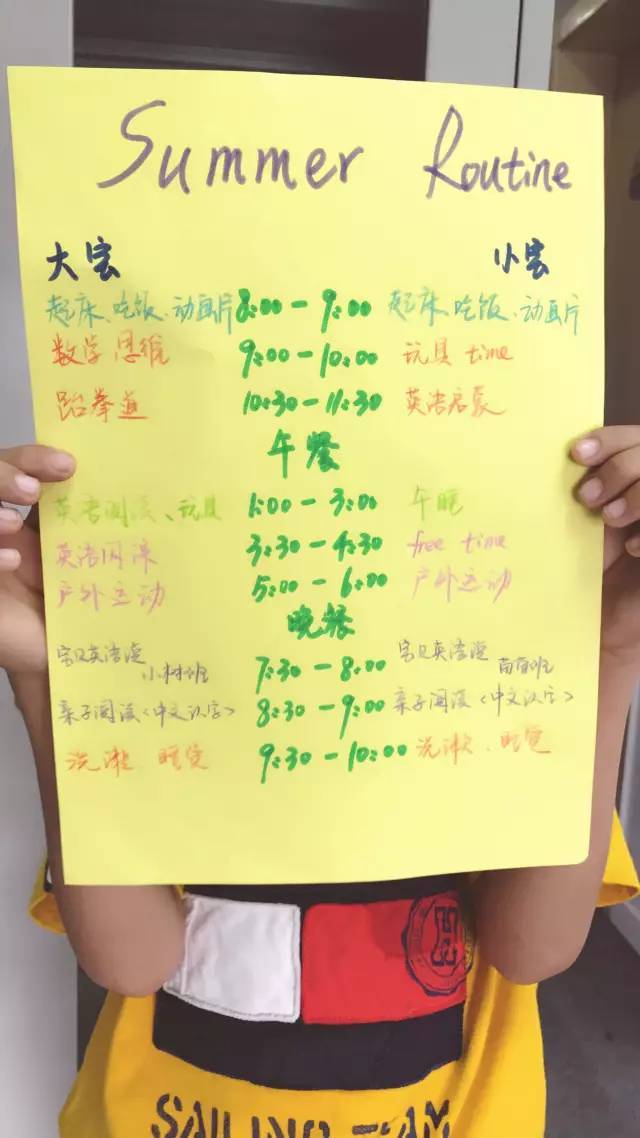 Summer Routine
大宝 小宝
起床、吃饭、动画片 8:00-9:00 起床、吃饭、动画片
数学思维 9:00-10:00 玩具 time
跆拳道 10:30-11:30 英语启蒙
午餐
英语阅读、玩具 1:00-3:00 午睡
英语网课 3:30-4:30 free time
户外运动 5:00-6:00 户外运动
晚餐
宝贝英语课 小树班 7:30-8:00 宝贝英语课 苗苗班
亲子阅读<中文识字> 8:30-9:00 亲子阅读<中文识字>
洗漱 睡觉 9:30-10:00 洗漱、睡觉
H
SAILING TEAM